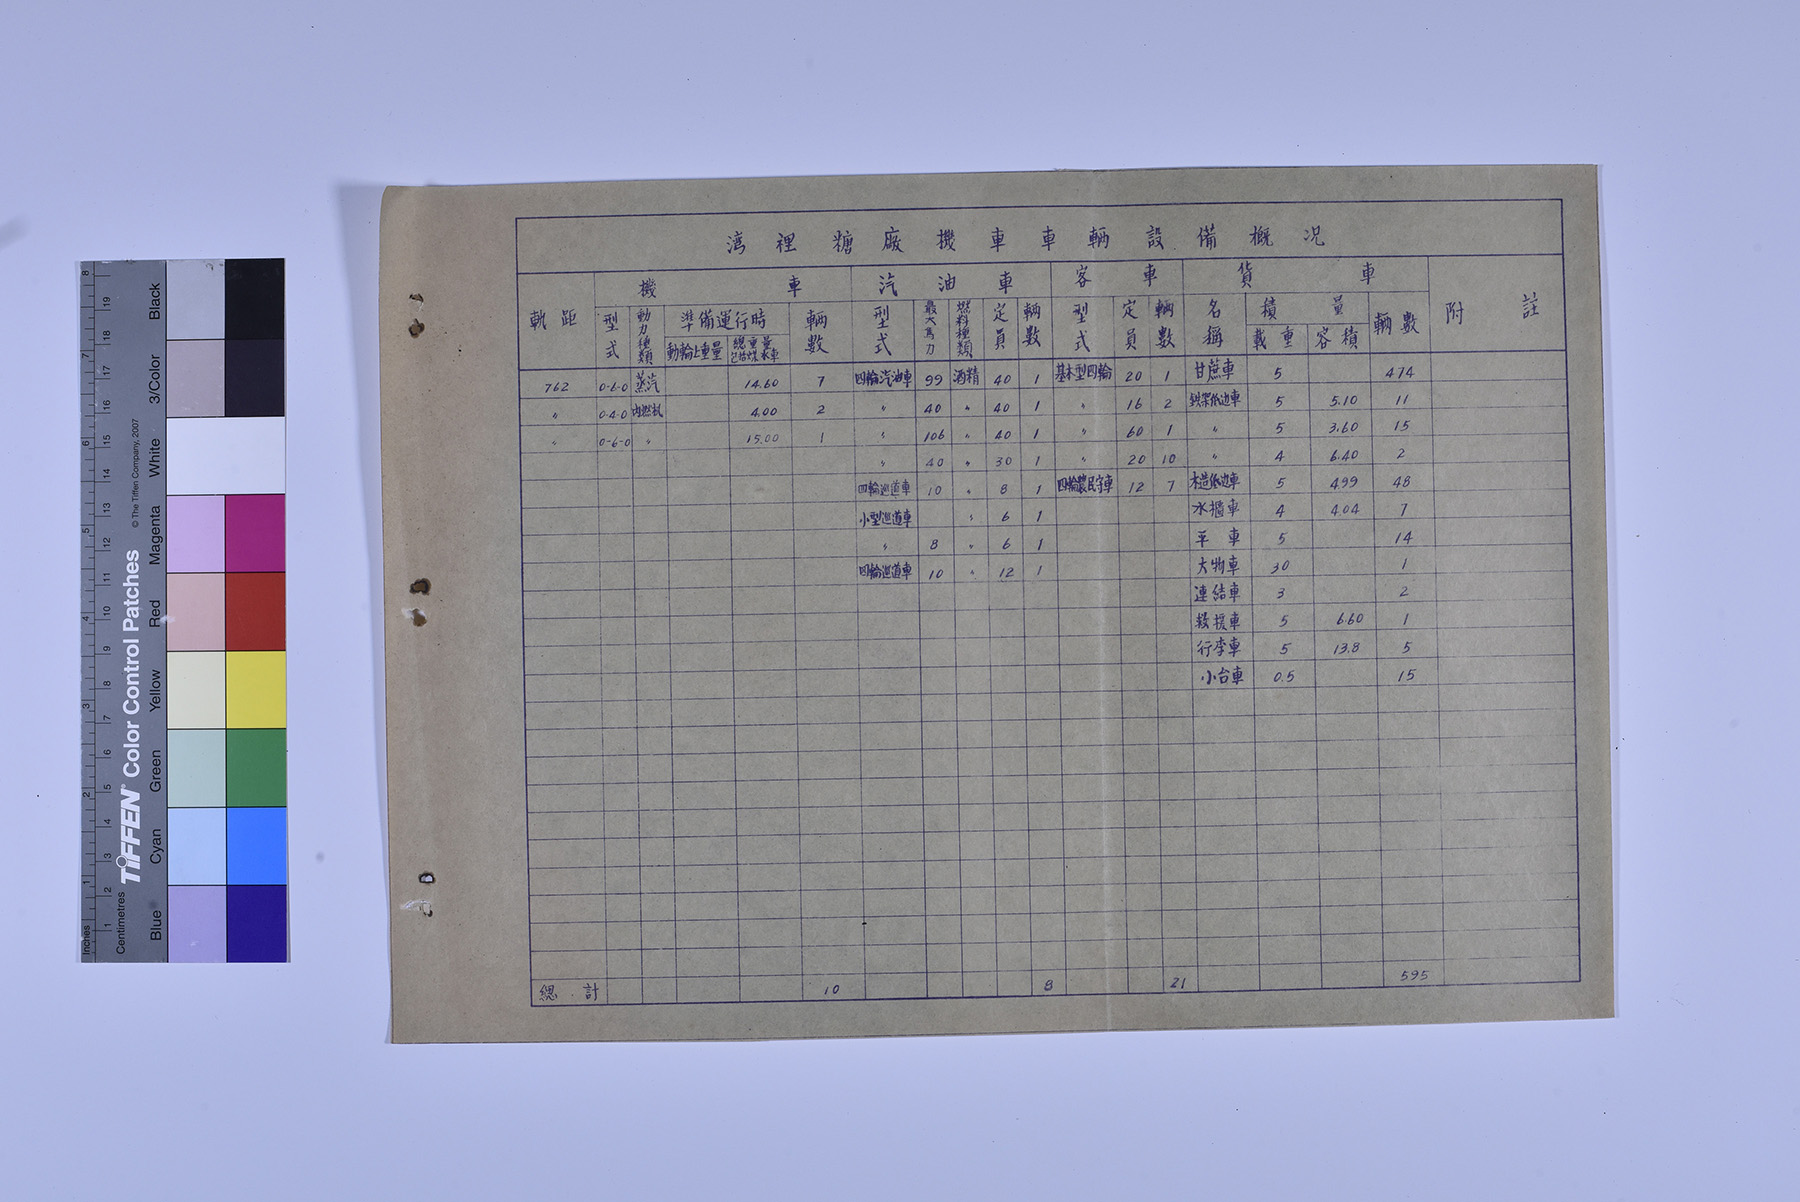 灣裡糖廠機車車輛設備概況
軌距 機車 汽油車 客車 貨車 附註
型式 動力種類 準備運行時 輛數 型式 最大馬力 燃料種類 定員 輛數 型式 定員 輛數 名稱 積量 輛數
動輪上重量 總重量包括煤水車 載重 容積
762 0-6-0 蒸汽 14.60 7 四輪汽油車 99 酒精 40 1 基本型四輪 20 1 甘蔗車 5 474
〃 0-4-0 内燃机 4.00 2 〃 40 〃 40 1 〃 16 2 鉄架低边車 5 5.10 11
〃 0-6-0 〃 15.00 1 〃 106 〃 40 1 〃 60 1 〃 5 3.60 15
〃 40 〃 30 1 〃 20 10 〃 4 6.40 2
四輪巡道車 10 〃 8 1 四輪農民守車 12 7 木造低边車 5 4.99 48
小型巡道車 〃 6 1 水櫃車 4 4.04 7
〃 8 〃 6 1 平車 5 14
四輪巡道車 10 〃 12 1 大物車 30 1
連結車 3 2
救援車 5 6.60 1
行李車 5 13.8 5
小台車 0.5 15
總計 10 8 21 595
Inches
Centimetres
TIFFEN® Color Control Patches
© The Tiffen Company, 2007
Blue
Cyan
Green
Yellow
Red
Magenta
White
3/Color
Black
1 2 3 4 5 6 7 8
1 2 3 4 5 6 7 8 9 10 11 12 13 14 15 16 17 18 19